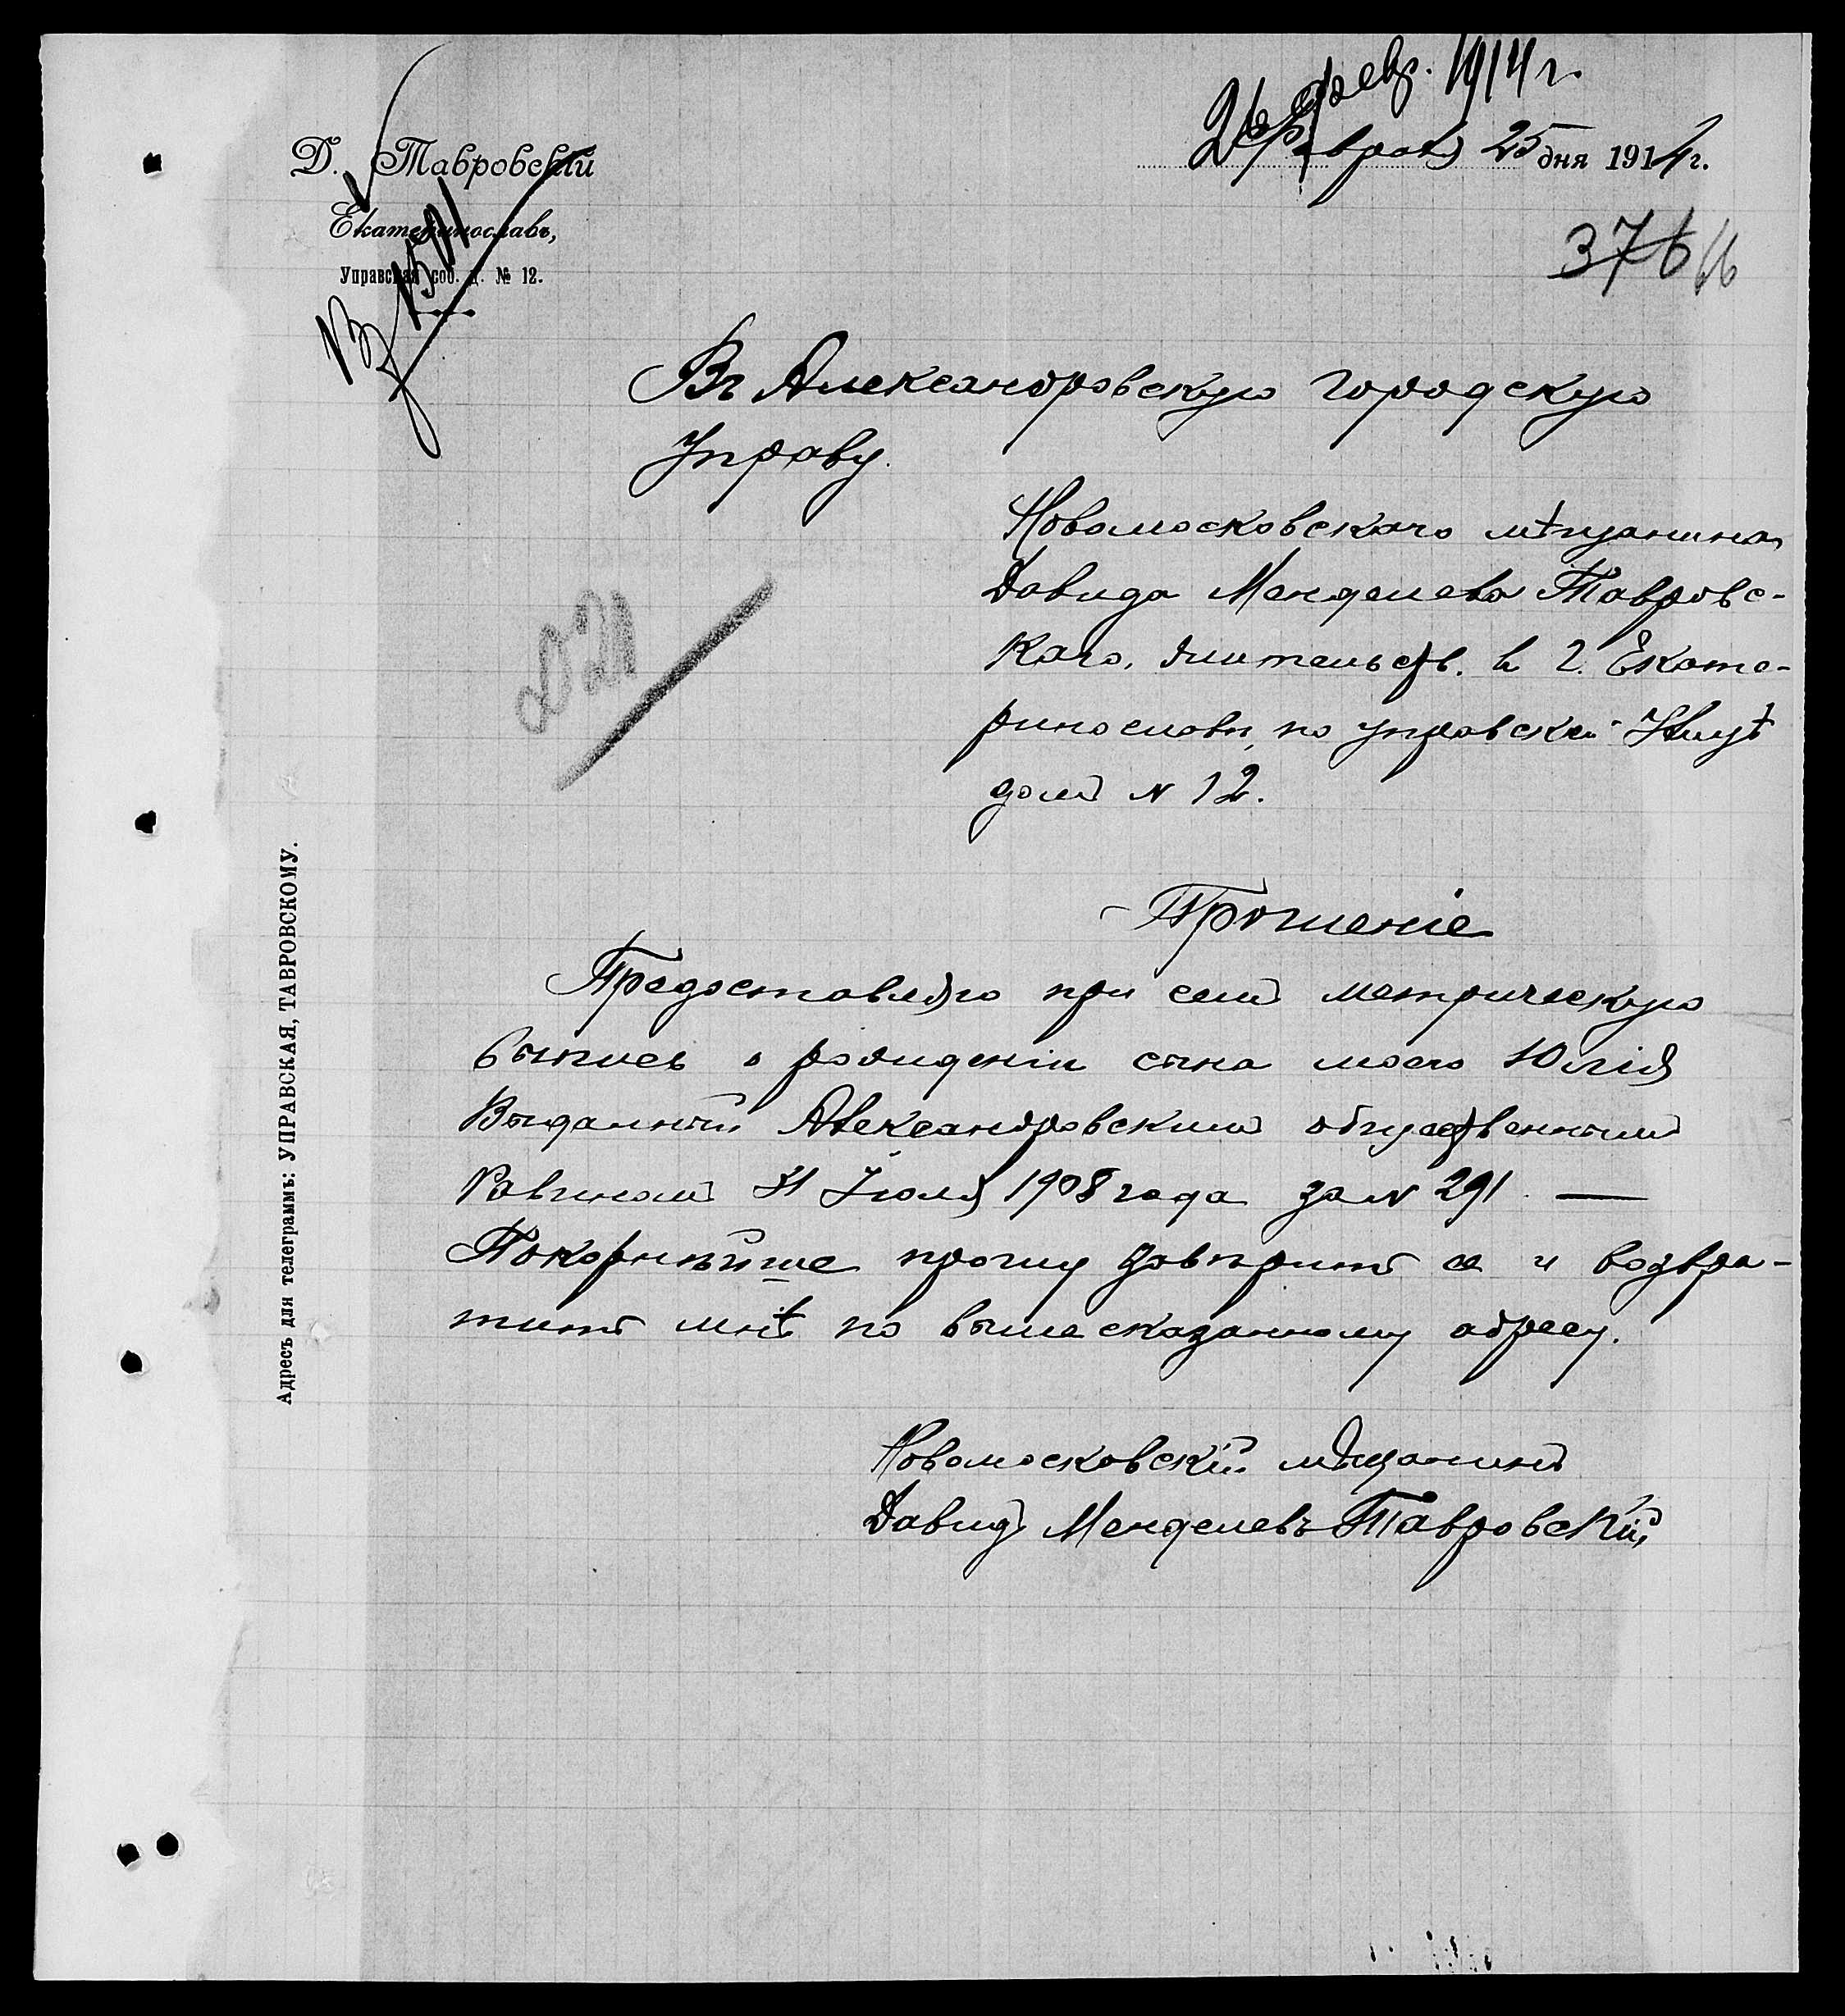 26 Февр. 1914 г.
Февраля 25 дня 1914 г.
Д. Тавровскій
Екатеринославъ,
Управская соб. д. № 12.
1591
376 66
Въ Александровскую городскую
Управу.
Новомосковскаго мѣщанина
Давида Менделева Тавровс-
каго, жительств. в г. Екате-
ринославѣ, по управской улицѣ
домъ № 12.
Прошеніе
Предоставляю при семъ метрическую
выпись о рождении сына моего Юлія
Выданный Александровскимъ общественнымъ
Равиномъ 31 Іюля 1908 года за № 291 —
Покорнѣйше прошу завѣрить ее и возвра-
тить мнѣ по выше сказанному адресу.
Новомосковскій мѣщанинъ
Давидъ Менделевъ Тавровскій
Адресъ для телеграммъ: УПРАВСКАЯ, ТАВРОВСКОМУ.